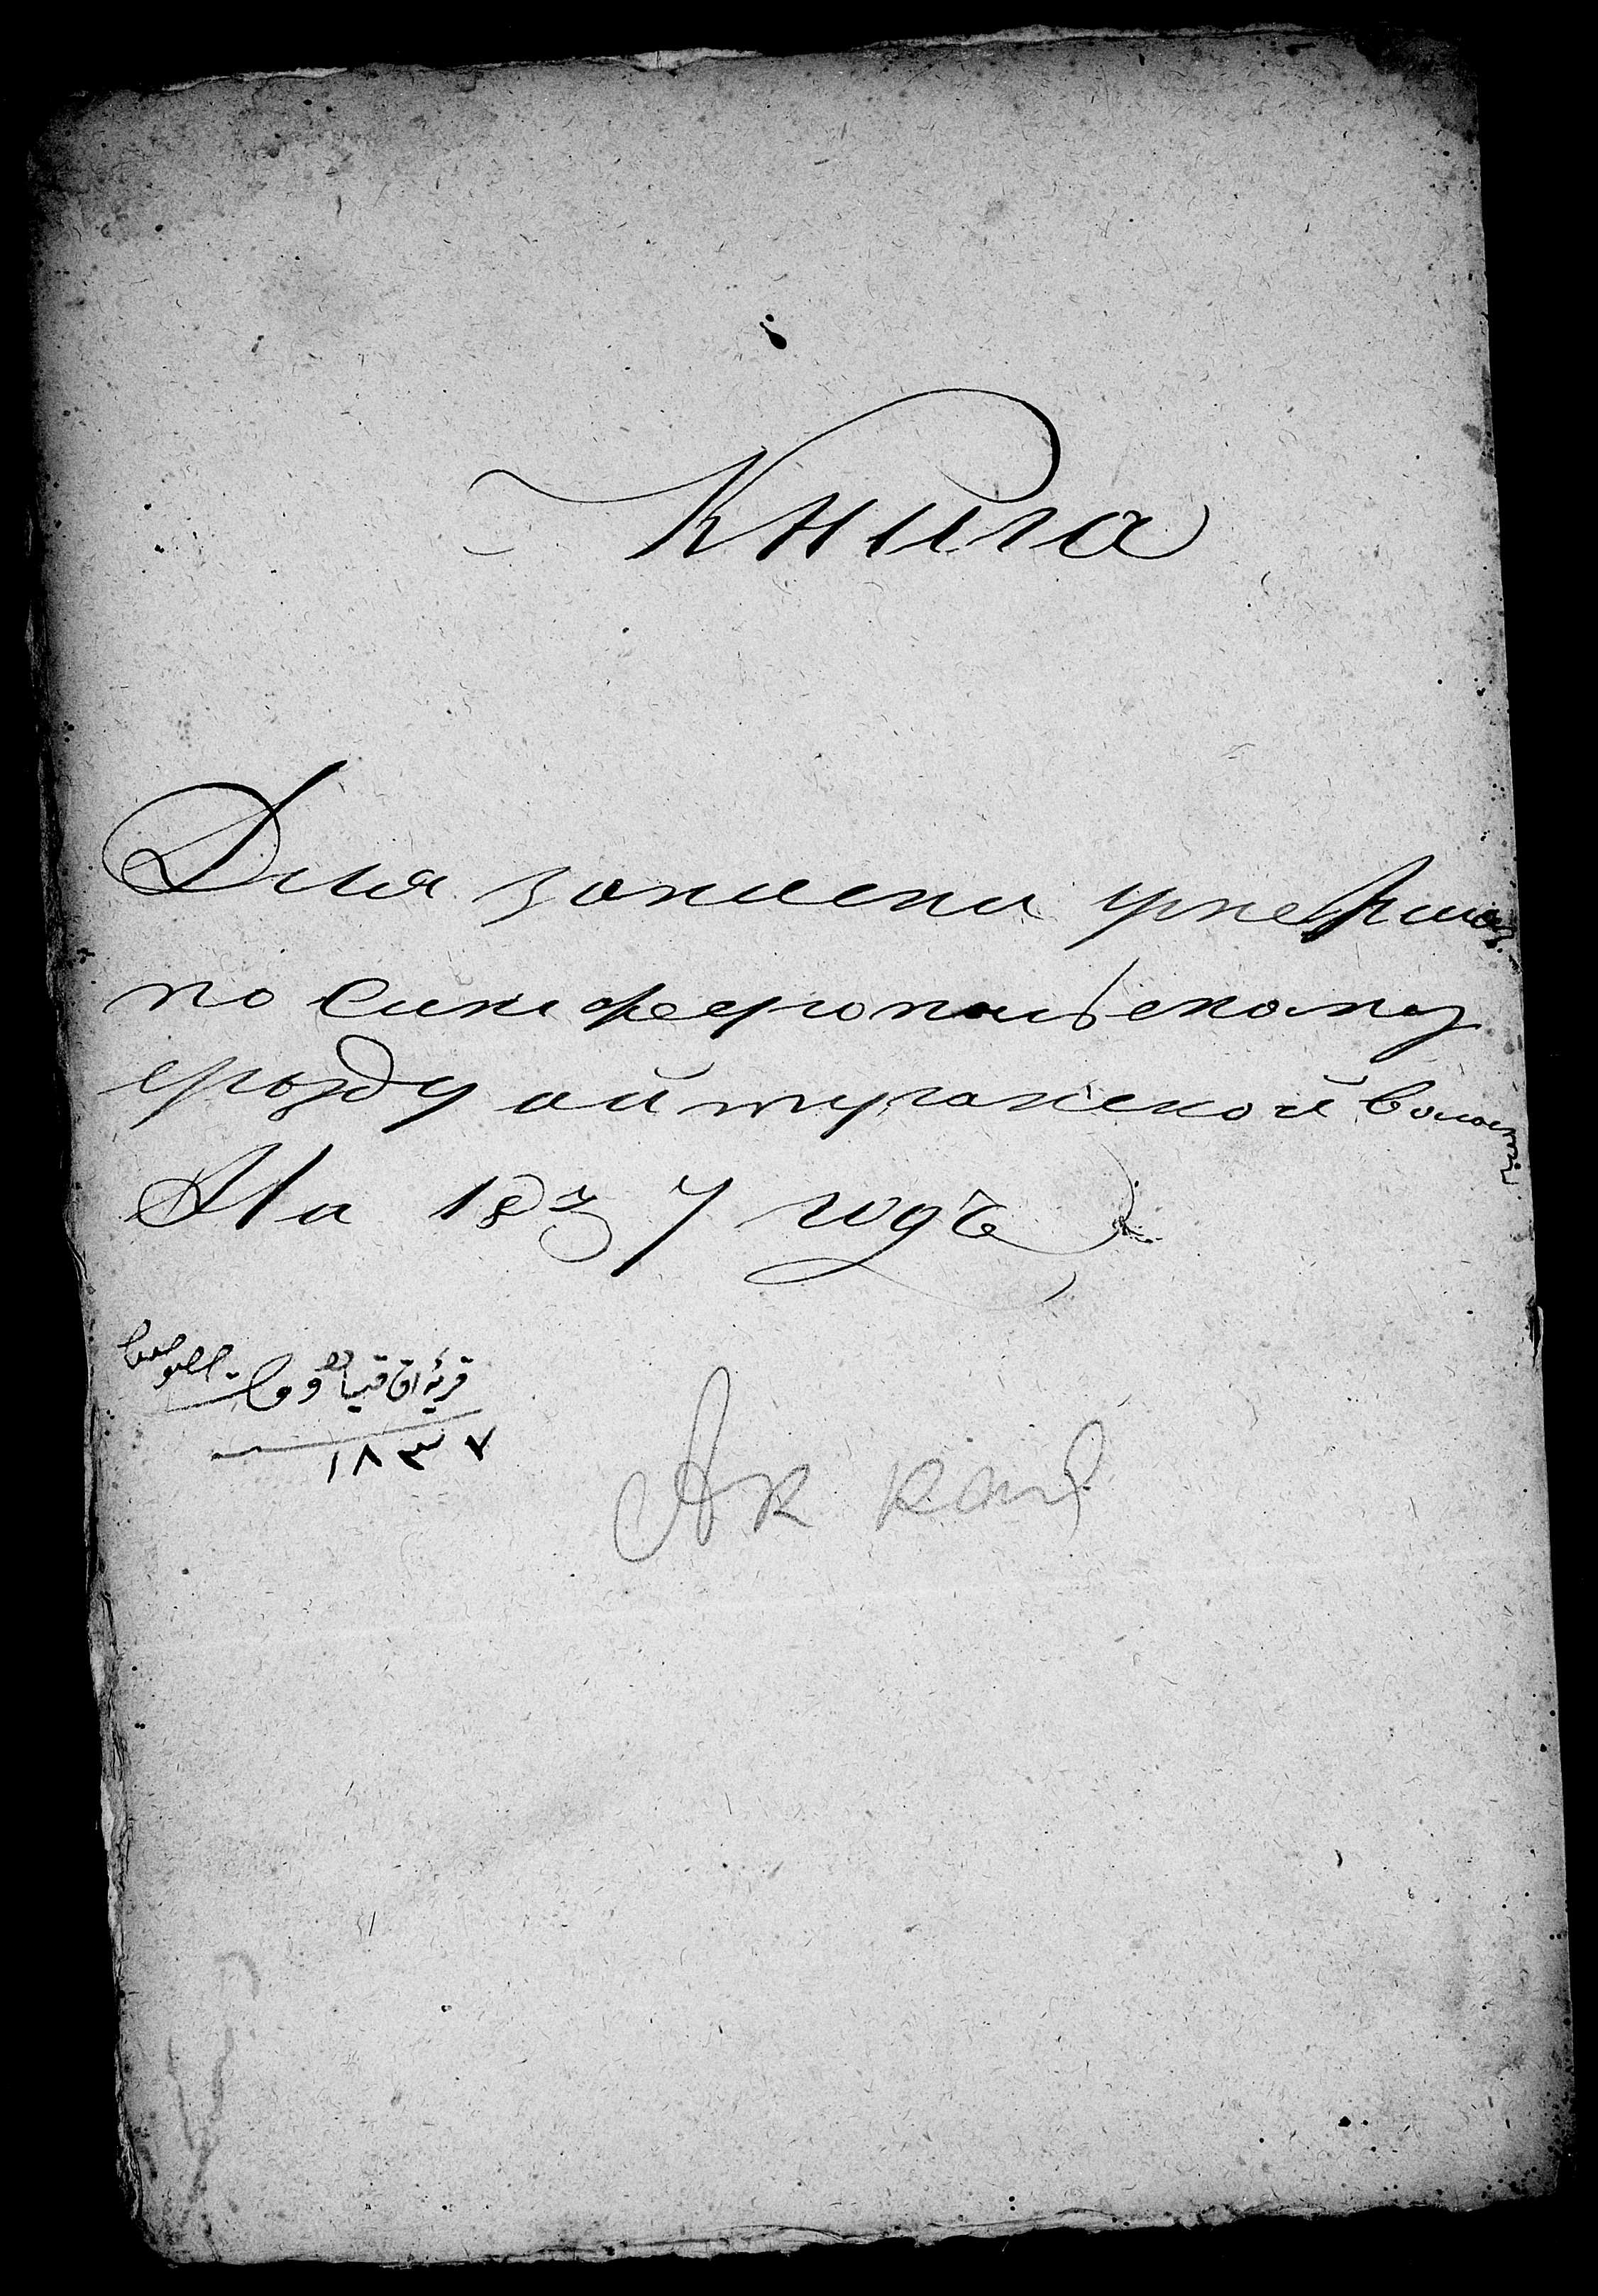 Книга
Для записки умерших
по Симферопольскому
уѣзду айтуганской волости
На 1837 годъ
قریهٔ اق قیا
۱۸۳۷
Ак кая